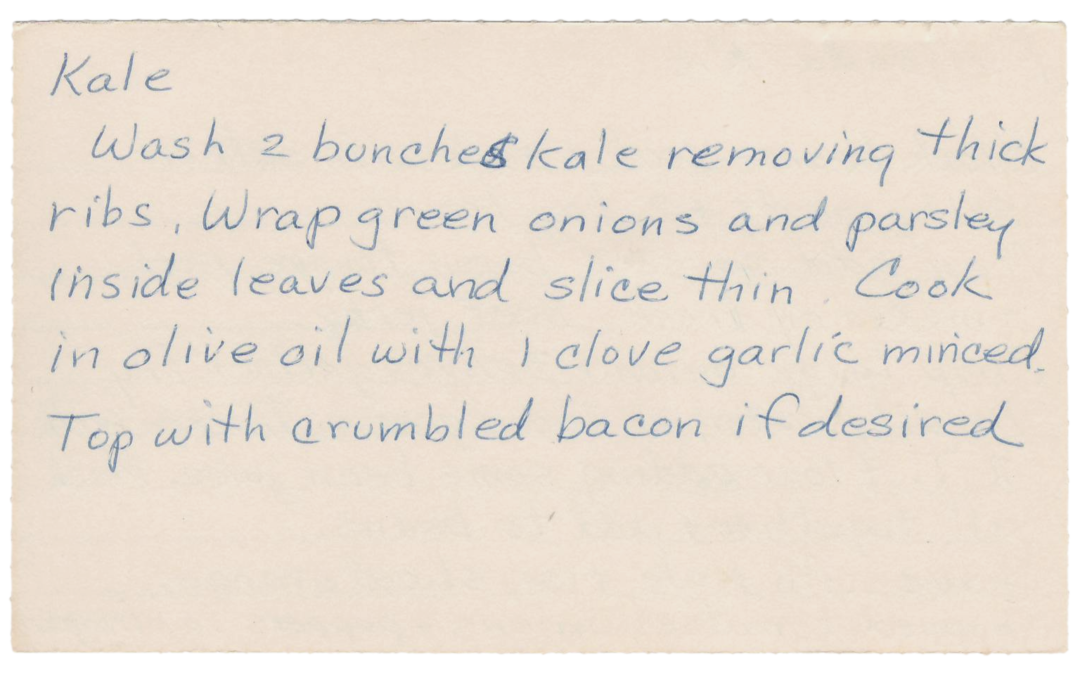 Kale
Wash 2 bunches kale removing thick
ribs. Wrap green onions and parsley
inside leaves and slice thin. Cook
in olive oil with 1 clove garlic minced.
Top with crumbled bacon if desired